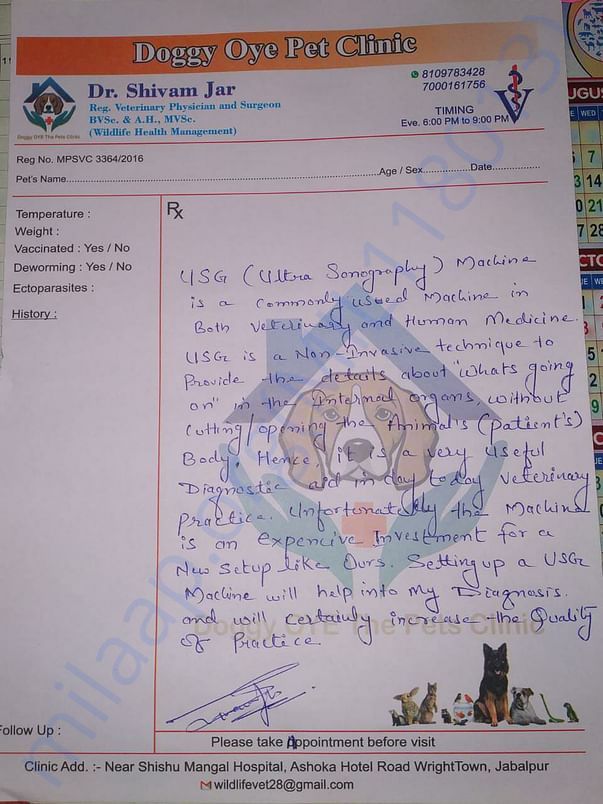 Doggy Oye Pet Clinic
Dr. Shivam Jar
Reg. Veterinary Physician and Surgeon
BVSc. & A.H., MVSc.
(Wildlife Health Management)
Doggy OYE The Pets Clinic
8109783428
7000161756
TIMING
Eve. 6:00 PM to 9:00 PM
Reg No. MPSVC 3364/2016
Pet's Name............Age / Sex............Date............
Temperature :
Weight :
Vaccinated : Yes / No
Deworming : Yes / No
Ectoparasites :
History :
Rx
USG (Ultra Sonography) Machine
is a commonly usued Machine in
Both Veterinary and Human Medicine.
USG is a Non-Invasive technique to
Provide the details about "whats going
on" in the Internal organs, without
Cutting/opening the Animal's (patient's)
Body. Hence, it is a very useful
Diagnostic aid in day today Veterinary
practice. Unfortunately the Machine
is an expencive Investment for a
New setup like Ours. Setting up a USG
Machine will help into My Diagnosis.
and will certainly increase the Quality
of Practice
Doggy OYE The Pets Clinic
Follow Up :
Please take Appointment before visit
Clinic Add. :- Near Shishu Mangal Hospital, Ashoka Hotel Road WrightTown, Jabalpur
wildlifevet28@gmail.com